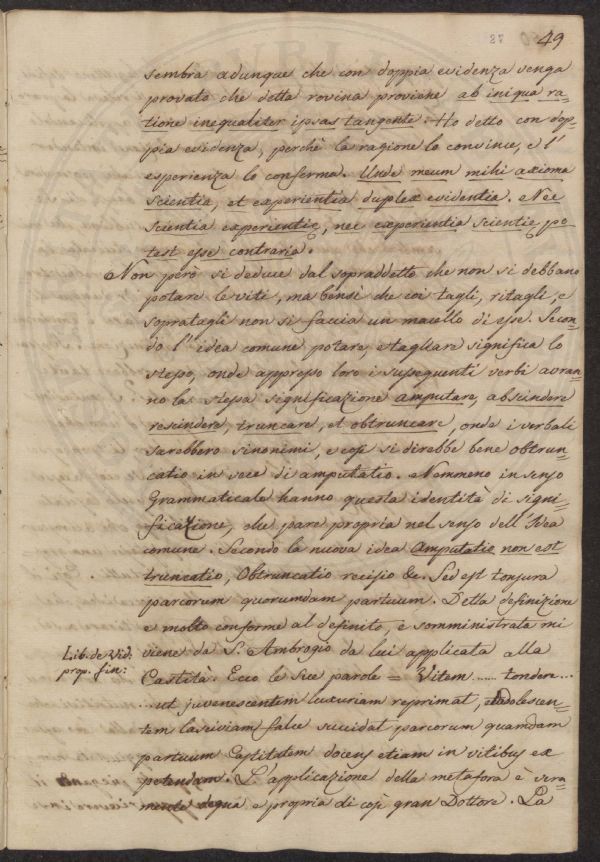 37 49
sembra adunque che con doppia evidenza venga
provato che detta rovina proviene ab iniqua ra=
tione inequaliter ipsas tangente. Ho detto con dop=
pia evidenza, perchè la ragione lo convince, e l'
esperienza lo conferma. Unde meum mihi axioma
scientia, et experientia duplex evidentia. Nec
scientia experientiȩ, nec experientia scientiȩ po=
test esse contraria.
Non però si deduce dal sopraddetto che non si debbano
potare le viti, ma bensì che coi tagli, ritagli, e
sopratagli non si faccia un macello di esse. Secon=
do l'idea comune potare, e tagliare significa lo
stesso, onde appresso loro i susseguenti verbi avran=
no la stessa significazione amputare, abscindere
rescindere, truncare, et obtruncare, onde i verbali
sarebbero sinonimi, e così si direbbe bene obtrun=
catio in vece di amputatio. Nemmeno in senso
Grammaticale hanno questa identità di signi=
ficazione, che pare propria nel senso dell'Idea
comune. Secondo la nuova idea Amputatio non est
truncatio, Obtruncatio recisio &c. Sed est tonsura
parcorum quorumdam partuum. Detta definizione
e molto conforme al definito, e somministrata mi
Lib. de Vid: prop. fin:
viene da S. Ambrogio da lui applicata alla
Castità. Ecco le sue parole = Vitem ...... tonden ...
... ut juvenescentem luxuriam reprimat, et adolescen=
tem lasciviam falce succidat parcorum quamdam
partuum Castitatem docens etiam in vitibus ex
petendam. L'applicazione della metafora è vera=
mente degna e propria di così gran Dottore. La